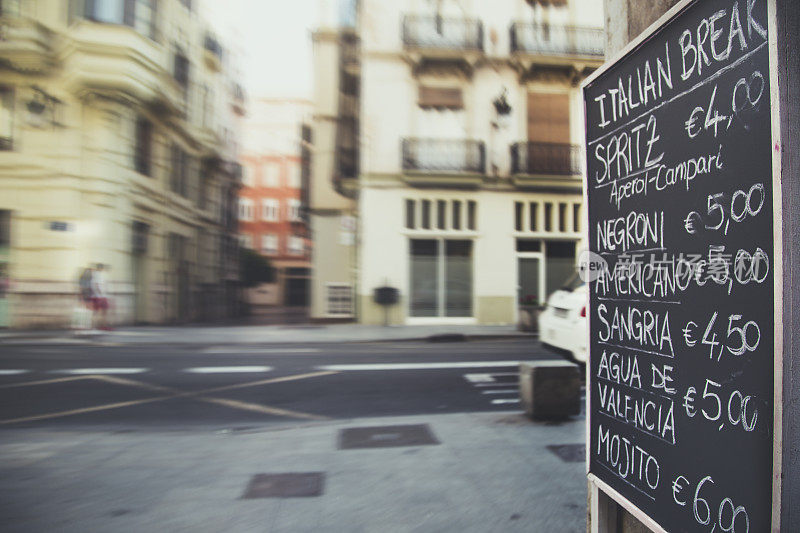 ITALIAN BREAK
SPRITZ €4,00
Aperol-Campari
NEGRONI €5,00
AMERICANO €5,00
SANGRIA €4,50
AGUA DE
VALENCIA €5,00
MOJITO €6,00
new 新片场